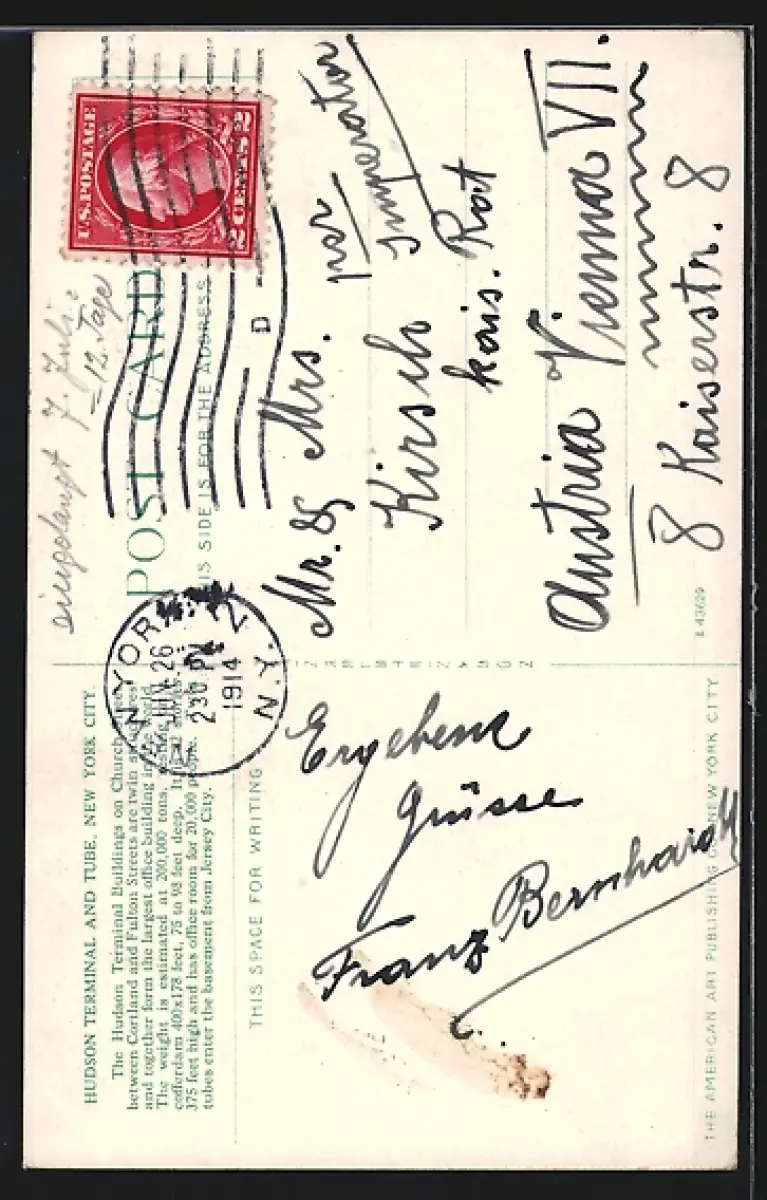 HUDSON TERMINAL AND TUBE, NEW YORK CITY.
The Hudson Terminal Buildings on Church Street
between Cortland and Fulton Streets are twin structures
and together form the largest office building in the world.
The weight is estimated at 200,000 tons,
cofferdam 400x178 feet, 75 to 98 feet deep. It is 22 stories
375 feet high and has office room for 20,000 people. The
tubes enter the basement from Jersey City.
THIS SPACE FOR WRITING
Ergebene
Grüsse
Franz Bernhardt
THE AMERICAN ART PUBLISHING CO. NEW YORK CITY
NEW YORK
JUN 26
2 30 PM
1914
N.Y.
D
U.S. POSTAGE
2 CENTS 2
eingelangt 7. Juli:
= 12. Tage
POST CARD
THIS SIDE IS FOR THE ADDRESS
per
Imperator
Mr. & Mrs.
Kirsch
kais. Rat
Austria Vienna VII.
8 Kaiserstr. 8